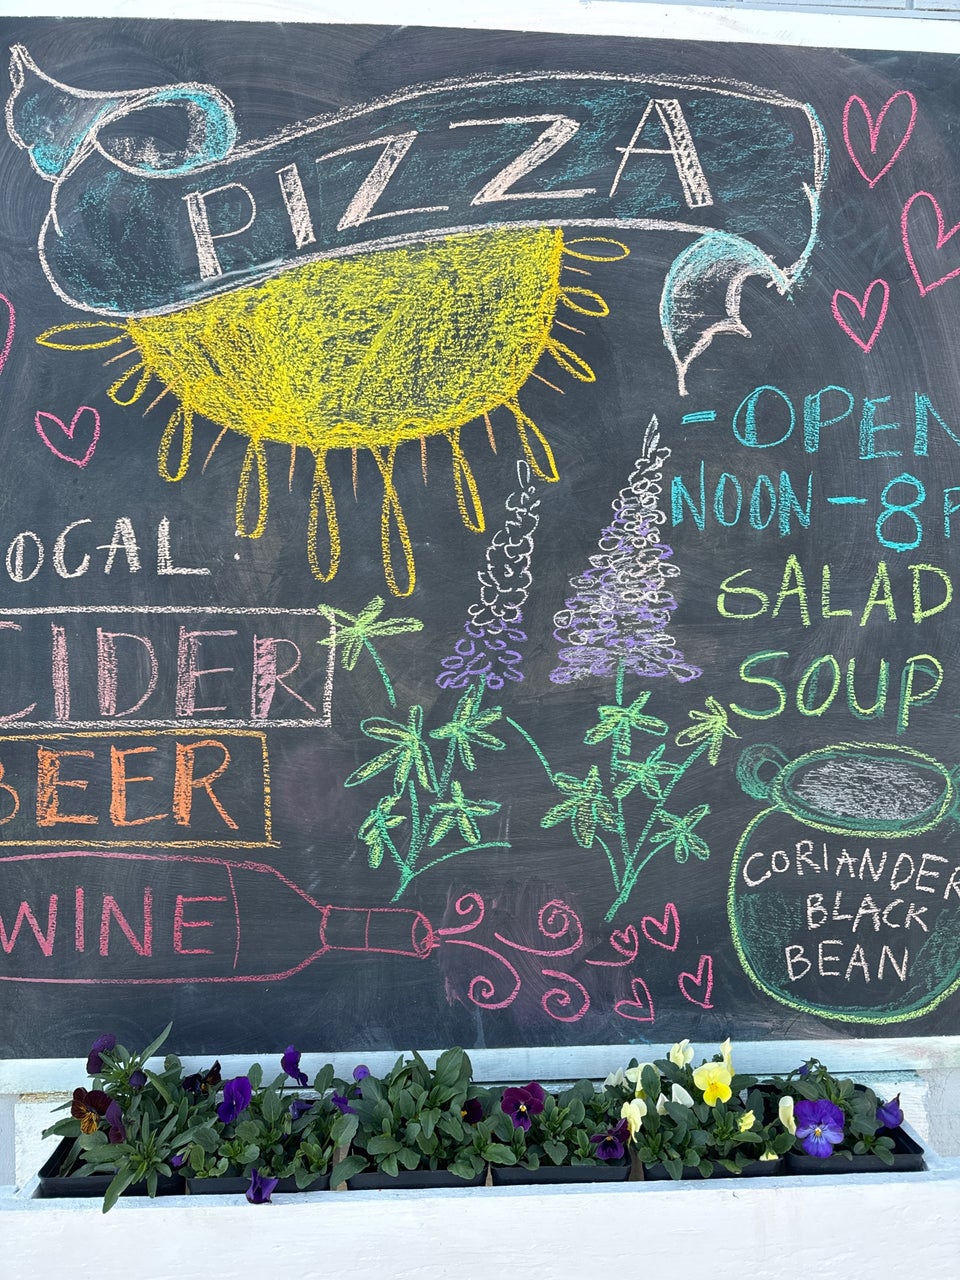 PIZZA
-OPEN
NOON-8P
OCAL
CIDER
BEER
WINE
SALAD
SOUP
CORIANDER
BLACK
BEAN